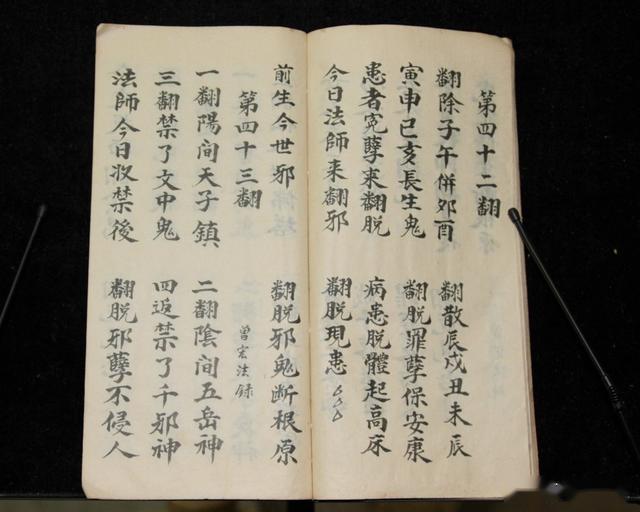 第四十二翻
翻除子午併卯酉 翻散辰戍丑未辰
寅申巳亥長生鬼 翻脱罪孽保安康
患者冤孽来翻脱 病患脱體起高床
今日法師来翻邪 翻脱現患
前生今世邪 翻脱邪鬼断根原
第四十三翻 曾宏法録
一翻陽间天子鎮 二翻陰间五岳神
三翻禁了文中鬼 四返禁了千邪神
法師今日收禁後 翻脱邪孽不侵人